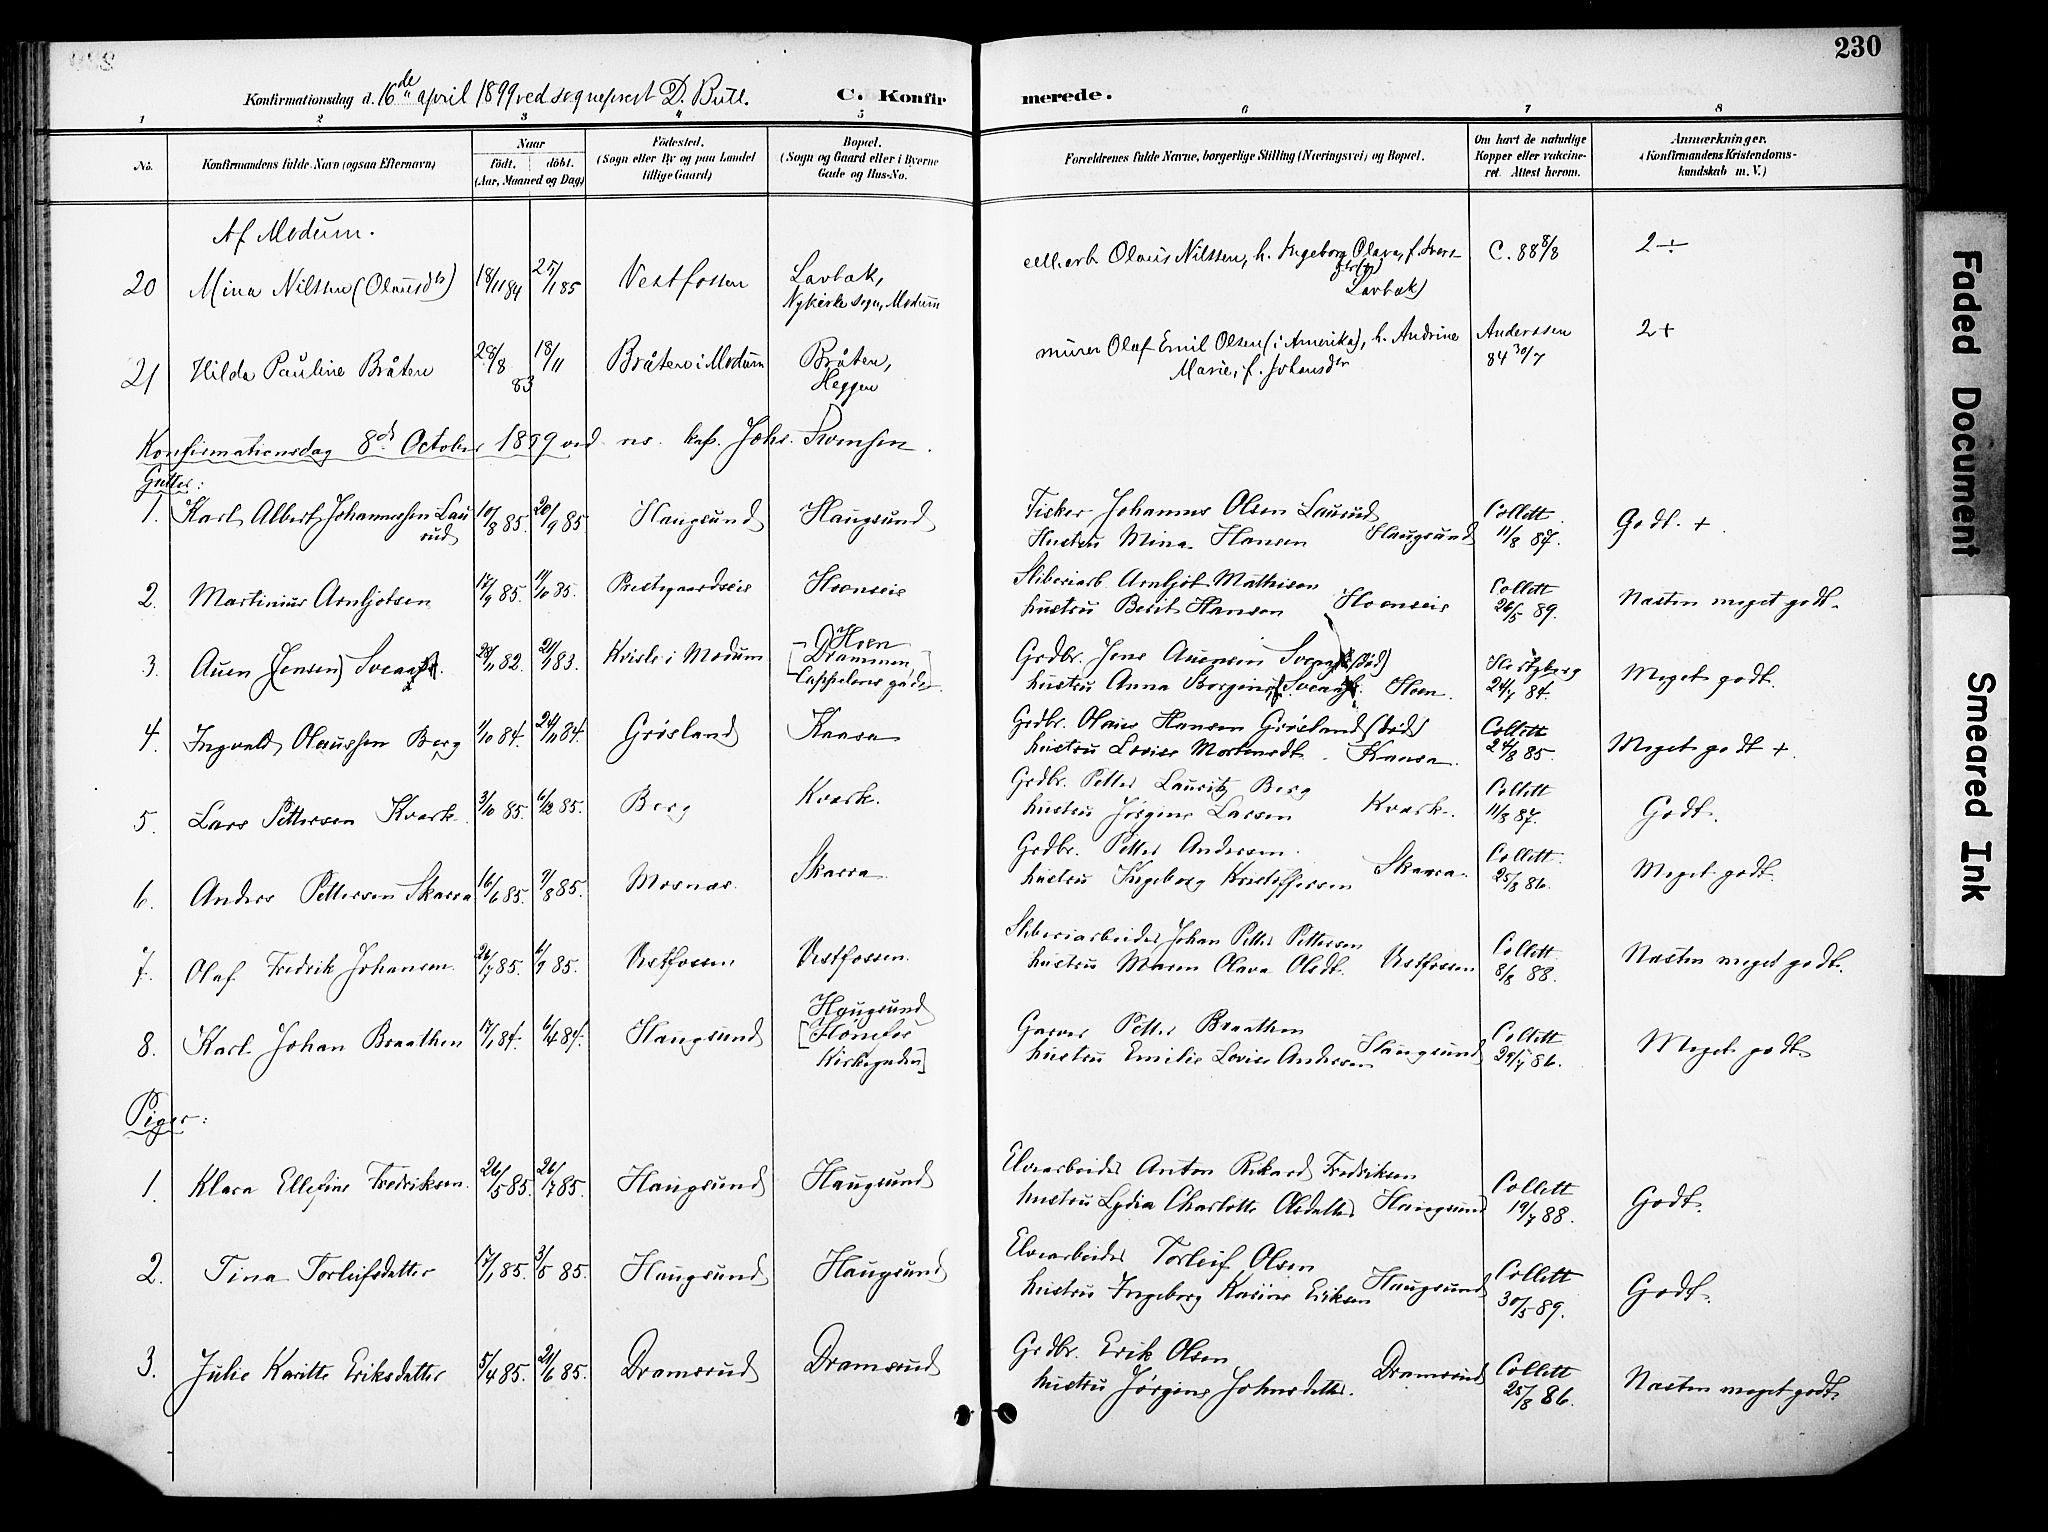 230
Konfirmationsdag d. 16de april 1899 ved sogneprest D. Bull.
C. Konfirmerede.
1 2 3 4 5 6 7 8
No.
Konfirmandens fulde Navn (ogsaa Efternavn)
Naar
födt. döbt.
(Aar, Maaned og Dag)
Födested.
(Sogn eller By og paa Landet
tillige Gaard)
Bopæl.
(Sogn og Gaard eller i Byerne
Gade og Hus-No.
Forældrenes fulde Navne, borgerlige Stilling (Næringsvei) og Bopæl.
Om havt de naturlige
Kopper eller vakcine-
ret. Attest herom.
Anmærkninger.
(Konfirmandens Kristendoms-
kundskab m. V.)
Af Modum.
20 Mina Nilssen (Olausdtr) 18/11 84 25/1 85 Vestfossen Lavbak, Nykirke sogn, Modum
Olaus Nilssen, h. Ingeborg Olava, f. Iversdtr Lavbak) C. 88 8/8 2 ÷
21 Hilda Pauline Bråten 28/8 83 18/11 Bråten i Modum Bråten, Heggen
murer Olaf Emil Olsen (i Amerika), h. Andrine Marie, f. Johansdtr Anderssen 84 30/7 2+
Konfirmationsdag 8de October 1899 ved res. kap. Johs. Svensen.
Gutter:
1. Karl Albert Johannessen Laurud 10/8 85. 20/9 85. Haugsund Haugsund
Fisker Johannes Olsen Laurud
Hustru Mina Hansen Haugsund Collett 11/8 87. Godt. +.
2. Martinius Arnljotsen 17/9 85. 11/10 85. Prestgaardseie Hoenseie
Sliberiarb. Arnljot Mathisen
hustru Berit Hansen Hoenseie Collett 26/5 89. Næsten meget godt.
3. Auen (Jensen) 28/11 82. 21/1 83. Kvisle i Modum – Hoen [Drammen, Cappelens gade.]
Grdbr. Jens Auensen (død)
hustru Anna Borgine Hoen. Hertzberg 24/7 84. Meget godt.
4. Ingvald Olaussen Berg 1/10 84. 24/11 84. Grøsland Kaasa
Grdbr. Olaus Hansen Grøsland (død)
hustru Lovise Mortensdt. Kaasa. Collett 24/8 85. Meget godt +.
5. Lars Pettersen Kvark. 3/10 85. 6/12 85. Berg Kvark.
Grdbr. Petter Lauritz Berg
hustru Jørgine Larsen Kvark. Collett 11/8 87. Godt.
6. Anders Pettersen Skaara 16/6 85. 9/8 85. Mosnæs. Skaara.
Grdbr. Petter Andersen.
hustru Ingeborg Kristoffersen Skaara. Collett. 25/8 86. Meget godt.
7. Olaf Fredrik Johansen. 26/7 85. 6/9 85. Vestfossen Vestfossen.
Sliberiarbeider Johan Petter Pettersen
hustru Maren Olava Olsdt. Vestfossen Collett. 8/8 88. Næsten meget godt.
8. Karl Johan Braathen 17/1 84. 6/4 84. Haugsund Haugsund [Hønefos Kirkegaden]
Garver Petter Braathen
hustru Emilie Lovise Andersen Haugsund Collett 29/7 86. Meget godt
Piger:
1. Klara Ellefine Fredriksen. 26/5 85. 26/7 85. Haugsund Haugsund
Elvearbeider Anton Rikard Fredriksen
hustru Lydia Charlotte Olsdatter Haugsund Collett 19/7 88. Godt.
2. Tina Torleifsdatter 17/1 85. 3/5 85. Haugsund Haugsund
Elvearbeider Torleif Olsen
hustru Ingeborg Karine Eriksen Haugsund Collett 30/5 89. Godt.
3. Julie Karitte Eriksdatter 5/4 85. 21/6 85. Dramsrud Dramsrud
Grdbr. Erik Olsen
hustru Jørgine Johnsdatter. Dramsrud Collett 25/8 86. Næsten meget godt.
Faded Document
Smeared Ink